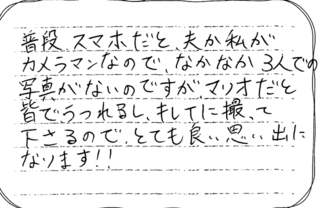 普段、スマホだと、夫か私が
カメラマンなので、なかなか3人での
写真がないのですが、マリオだと
皆でうつれるし、キレイに撮って
下さるので、とても良い思い出に
なります!!